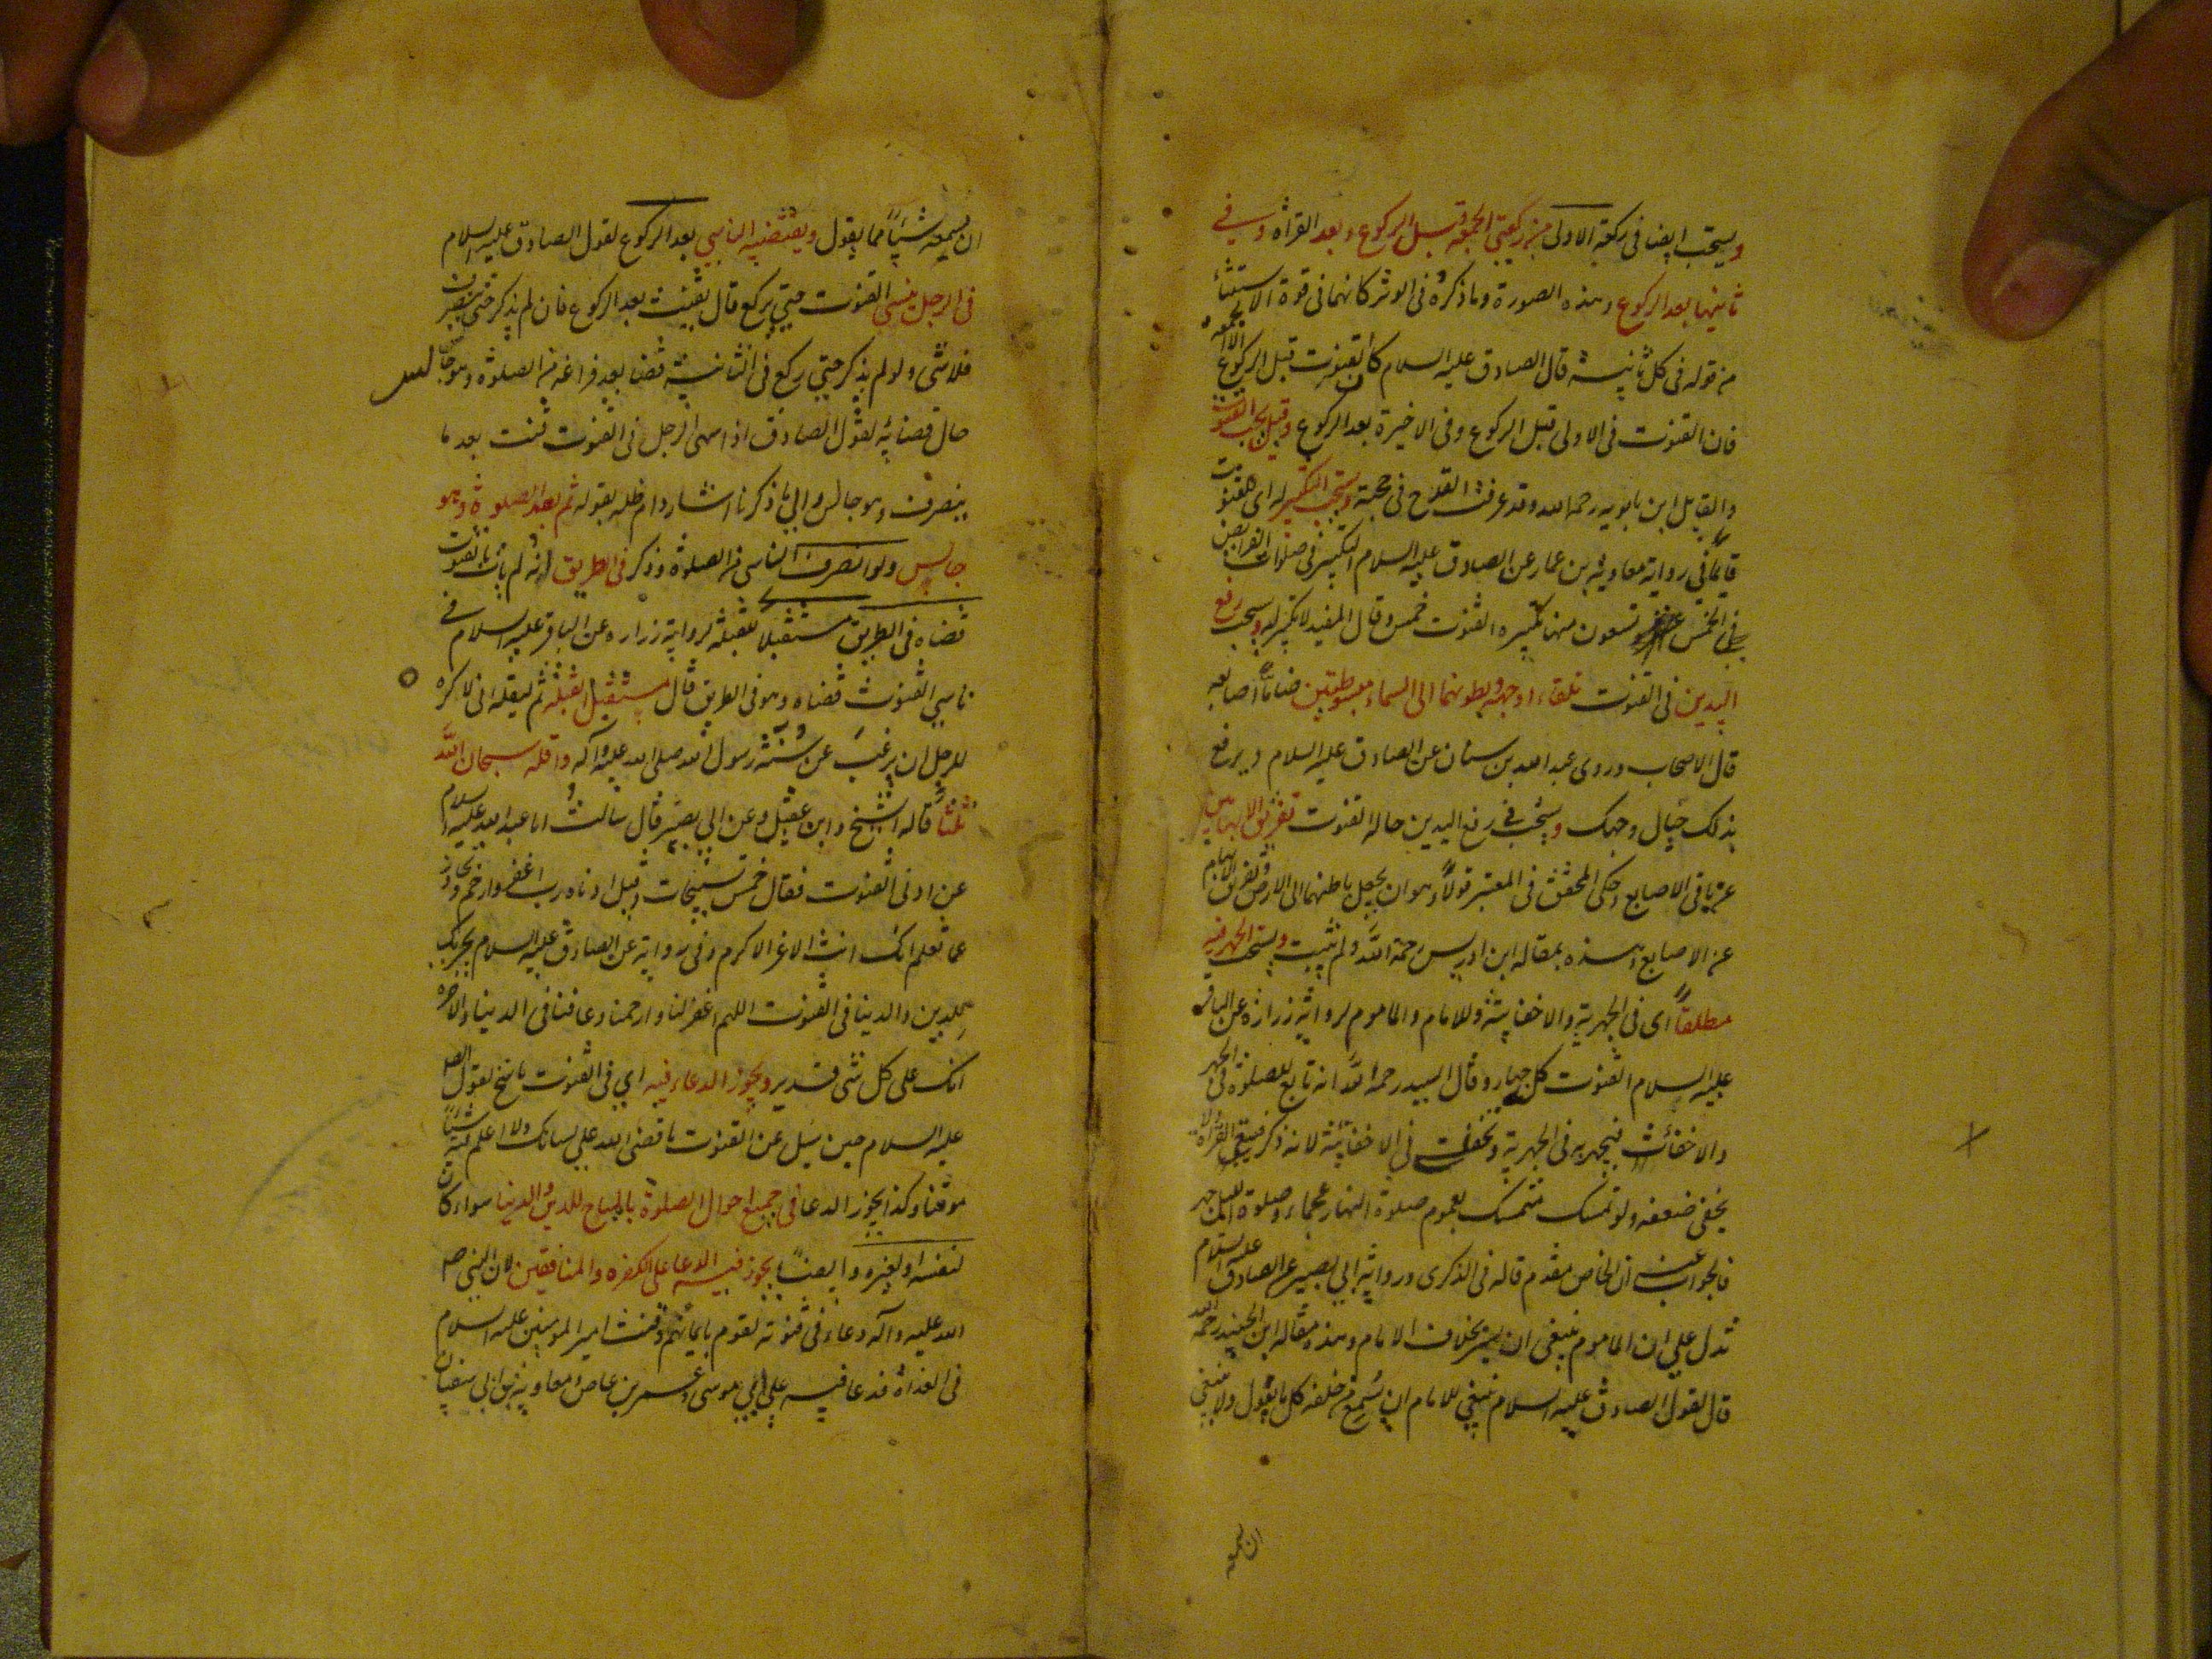 ويستحب ايضا في ركعة الاولى من ركعتي الجمعة قبل الركوع وبعد القراة وفي
ثانيتها بعد الركوع وهذه الصورة وما ذكره في الوتر كانهما في قوة الاستثناء
من قوله في كل ثانية قال الصادق عليه السلام كل القنوت قبل الركوع الا الجمعة
فان القنوت في الاولى قبل الركوع وفي الاخيرة بعد الركوع وقيل يجب القنوت
والقايل ابن بابويه رحمه الله وقد عرفت القدح في حجته ويستحب التكبير له اي للقنوت
قايما في رواية معاوية بن عمار عن الصادق عليه السلام التكبير في صلوات الفرايض
في الخمس وتسعون منها تكبيرة القنوت خمس وقال المفيد لا تكبير له ويستحب رفع
اليدين في القنوت تلقاء وجهه وبطونهما الى السماء مبسوطتين ضاما اصابعه
قال الاصحاب وروى عبد الله بن سنان عن الصادق عليه السلام ويرفع
يديك حيال وجهك ويستحب في رفع اليدين حالة القنوت تفريق الابهامين
عن باقي الاصابع وحكى المحقق في المعتبر قولا وهو ان يجعل باطنهما الى الارض وتفريق الابهام
عن الاصابع وهذه مقالة ابن ادريس رحمة الله ولم يثبت ويستحب الجهر فيه
مطلقا اي في الجهرية والاخفاتية وللامام والماموم لرواية زرارة عن الباقر
عليه السلام القنوت كله جهار وقال السيد رحمه الله انه تابع للصلوة في الجهر
والاخفات فيجهر به في الجهرية ويخفت في الاخفاتية لانه ذكر فيتبع القراة ولا
يخفى ضعفه ولو تمسك متمسك بعموم صلوة النهار عجماء وصلوة الليل جهر
فالجواب عنه ان الخاص مقدم قاله في الذكرى ورواية ابي بصير عن الصادق عليه السلام
تدل على ان الماموم ينبغي ان يسر خلاف الامام وهذه مقالة ابن الجنيد رحمه الله
قال لقول الصادق عليه السلام ينبغي للامام ان يسمع من خلفه كل ما يقول ولا ينبغي
ان يسمعه
ان يسمعه شيئا مما يقول ويقضيه الناسي بعد الركوع لقول الصادق عليه السلام
في الرجل ينسى القنوت حتى يركع قال يقنت بعد الركوع فان لم يذكر حتى ينصرف
فلا شي ولو لم يذكر حتى ركع في الثانية قضا بعد فراغه من الصلوة وهو جالس
حال قضائه لقول الصادق اذا سهى الرجل في القنوت قنت بعد ما
ينصرف وهو جالس والى ما ذكرنا اشار دام ظله بقوله ثم بعد الصلوة وهو
جالس ولو انصرف الناسي من الصلوة وذكر في الطريق انه لم يات بالقنوت
قضاه في الطريق مستقبلا للقبلة لرواية زراره عن الباقر عليه السلام في
ناسي القنوت قضاه وهو في الطريق قال مستقبل القبلة ثم ليقله اني لاكره
للرجل ان يرغب عن سنة رسول الله صلى الله عليه وآله واقله سبحان الله
ثلثا قاله الشيخ وابن عقيل وعن ابي بصير قال سالت ابا عبد الله عليه السلام
عن ادنى القنوت فقال خمس تسبيحات وقيل ادناه رب اغفر وارحم وتجاوز
عما تعلم انك انت الاعز الاكرم وفي رواية عن الصادق عليه السلام يجزيك
للدين والدنيا في القنوت اللهم اغفر لنا وارحمنا وعافنا في الدنيا والاخرة
انك على كل شي قدير ويجوز الدعاء فيه اي في القنوت لقول الص
عليه السلام حين سئل عن القنوت ما قضى الله على لسانك ولا اعلم فيه شيئا
موقتا وكذا يجوز الدعا في جميع احوال الصلوة بالمباح للدين والدنيا سواء كان
لنفسه او لغيره وايضا يجوز فيه الدعا على الكفرة والمنافقين لان النبي ص
الله عليه وآله دعا في قنوته لقوم باعيانهم وقنت امير المومنين عليه السلام
في الغداة فدعا فيه على ابي موسى وعمر بن عاص ومعاوية بن ابي سفيان